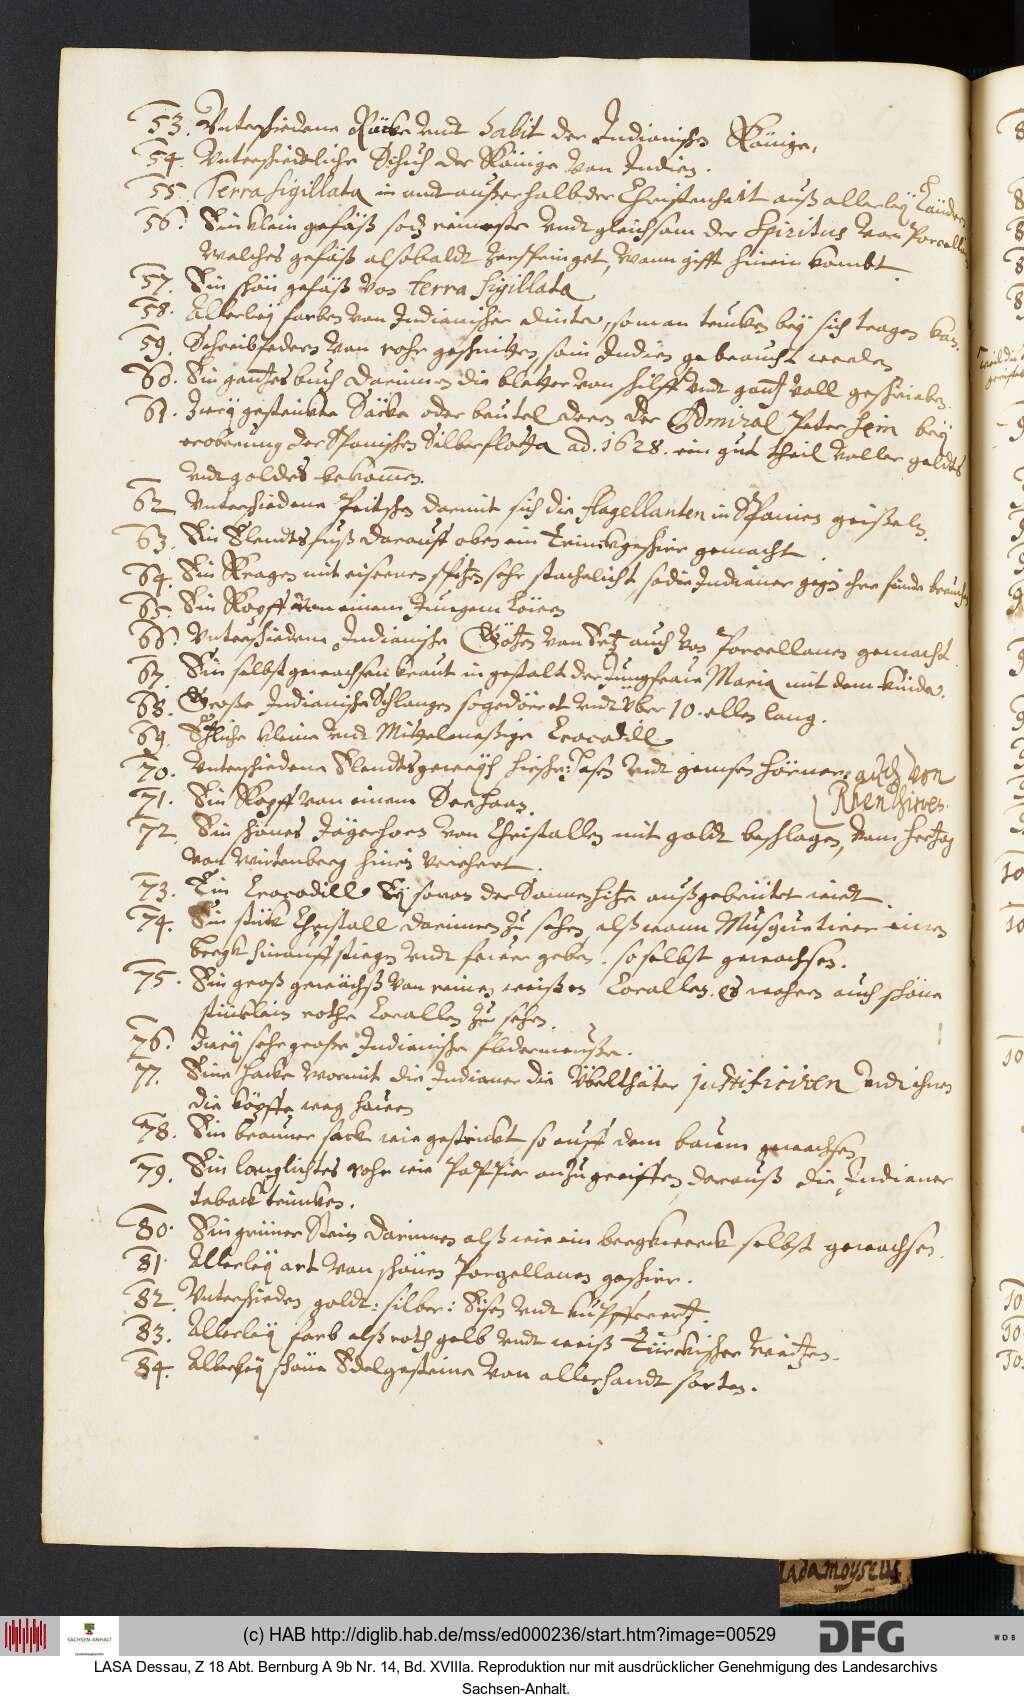 53. Vnterschiedene Röcke vndt habit der Indianischen Könige,
54. Vnterschiedtliche Schuch der Könige von Jndien.
55. Terra Sigillata in vndt außerhalb der Christenheit auß allerley Länder
56. Ein klein gefäß so reineste vndt gleichsam der Spiritus von Porcellan
welches gefäß alsobaldt zerspringet, wann gifft hinein kombt
57. Ein schön gefäß von terra sigillata
58. Allerley farben von Jndianischer dinte, so man trucken bey sich tragen kan.
59. Schreibfedern von rohr geschnitzen, so in Jndien gebraucht werden
60. Ein gantzes buch darinnen die bletter von schilff vndt gantz voll geschrieben.
61. Zwey gestrickte Säcke oder beutel deren der Admiral Peter Hein bey
eroberung der Spanischen Silberflotta ad. 1628. ein gut theil voller geldts
vndt goldes bekommen.
62 Vnterschiedene Peitschen darmit sich die flagellanten in Spanien geißeln.
63. Ein Elendtsfuß darauff oben ein Trinckgeschirr gemacht.
64. Ein Kragen mit eisernen spitzen sehr stachelicht, so die Jndianer gegen ihre feinde brauchen
65. Ein Kopff von einem Jungem Löwen
66. Vnterschiedene Jndianische Götzen von Ertz auch von Porcellanen gemacht
67. Ein selbstgewachsen kraut in gestalt der Jungfraw Maria mit dem kinde.
68. Große Jndianische Schlangen so gedörret vndt vber 10. ellen lang.
69. Etliche kleine vndt Mittelmeßige Crocodill
70. Vnterschiedene Elendtsgeweyh hirsche: Hasen vndt gemsen hörner: auch von
Rhen thieren.
71. Ein Kopff von einem Seehaan.
72. Ein schönes Jägerhorn von Christallen mit goldt beschlagen, vom hertzog
von Wirtenberg hinein verehret.
73. Ein Crocodill Ey so von der Sonnenhitze außgebrütet wirdt.
74. Ein stück Christall darinnen zu sehen, alß wann Musquetierer einen
bergk hinauff stiegen vndt fewer geben. so selbst gewachsen.
75. Ein groß gewächß von reinen weißen Corallen. es wahren auch schöne
stücklein rothe Corallen zu sehen.
76. Zwey sehr große Jndianische fledermeuße.
77. Eine hacke wormit die Jndianer die Vbelthäter justificiren vndt ihnen
die köpffe weg hawen
78. Ein brauner sack wie gestrickt so auff dem baum gewachsen
79. Ein länglichtes rohr wie Pappier anzugreiffen darauß die Jndianer
taback trincken.
80. Ein grüner Stein darinnen alß wie ein bergkwerck selbst gewachsen.
81. Allerley art von schönen Porzellanen geschirr.
82. Vnterschieden goldt: silber: Eisen vndt kupffer ertz.
83. Allerley farb alß roth gelb vndt weiß Türckischer weitzen.
84. Allerley schöne Edelgesteine von allerhandt sorten.
(c) HAB http://diglib.hab.de/mss/ed000236/start.htm?image=00529
SACHSEN-ANHALT
DFG
WDB
LASA Dessau, Z 18 Abt. Bernburg A 9b Nr. 14, Bd. XVIIIa. Reproduktion nur mit ausdrücklicher Genehmigung des Landesarchivs
Sachsen-Anhalt.